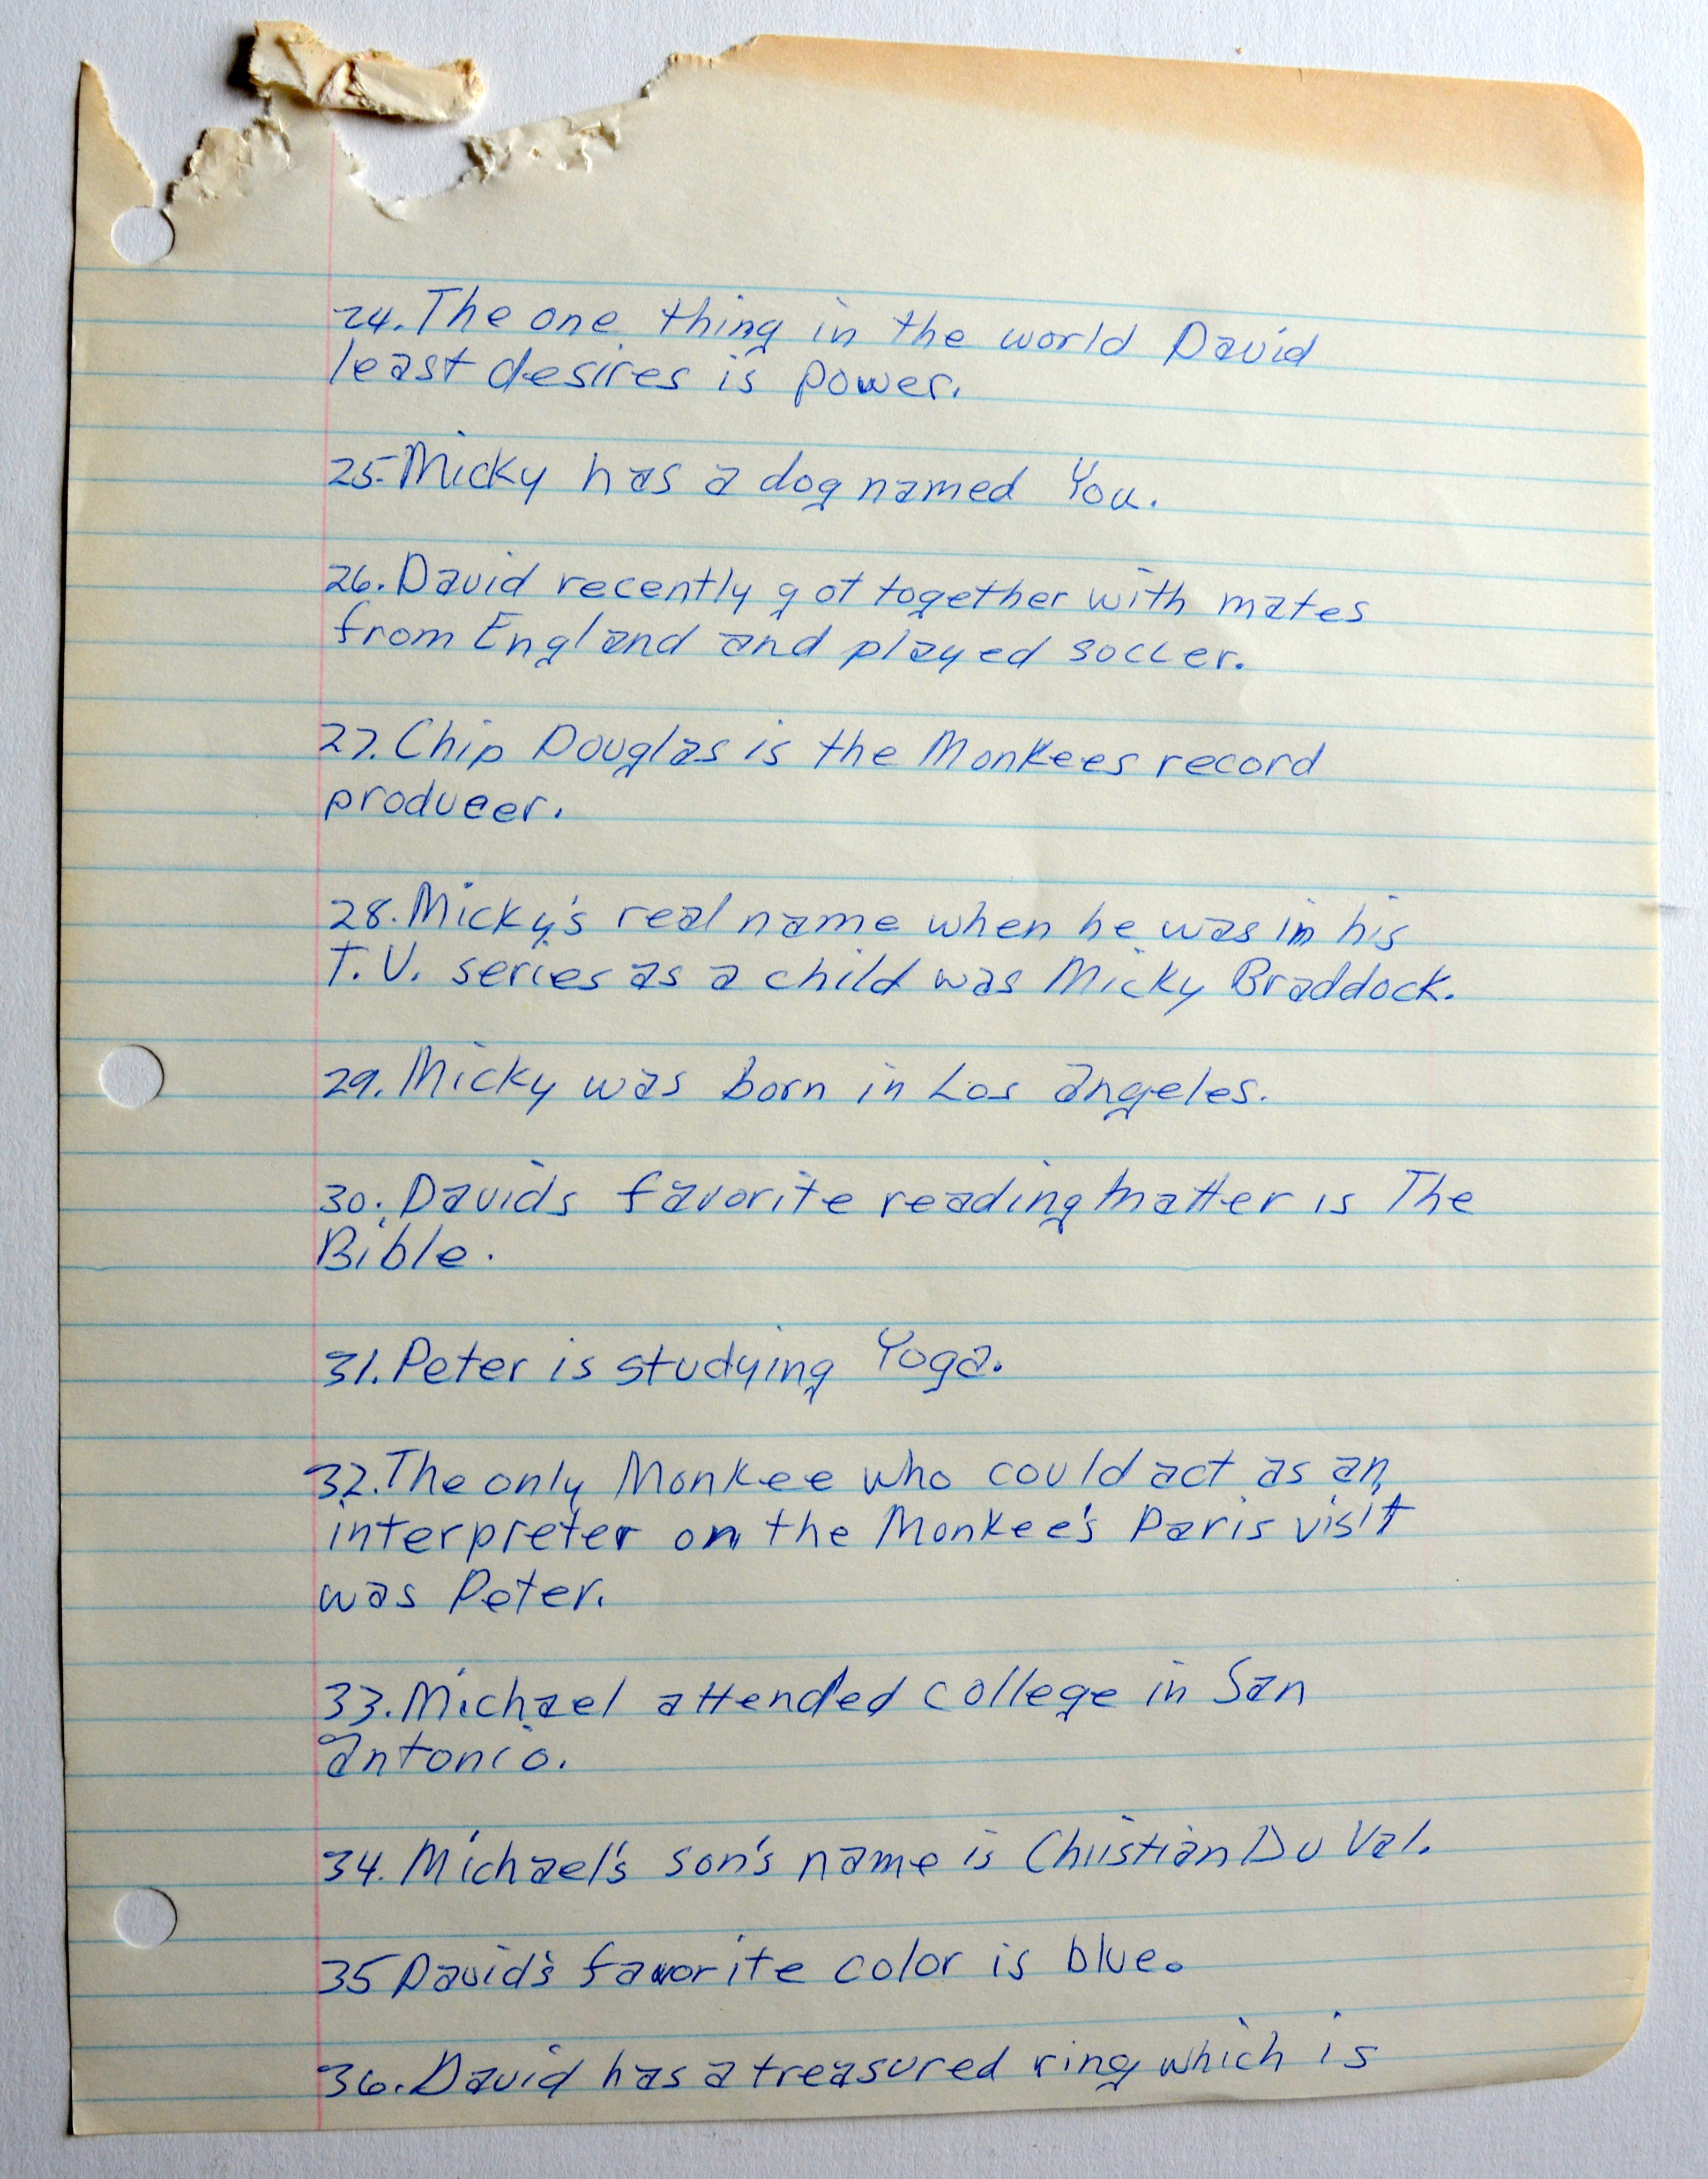 24. The one thing in the world David
least desires is power.
25. Micky has a dog named You.
26. David recently got together with mates
from England and played soccer.
27. Chip Douglas is the Monkees record
producer.
28. Micky's real name when he was in his
T.V. series as a child was Micky Braddock.
29. Micky was born in Los angeles.
30. Davids favorite reading matter is The
Bible.
31. Peter is studying Yoga.
32. The only Monkee who could act as an
interpreter on the Monkee's Paris visit
was Peter.
33. Michael attended college in San
antonio.
34. Michael's son's name is Christian Du Val.
35 David's favorite color is blue.
36. David has a treasured ring which is